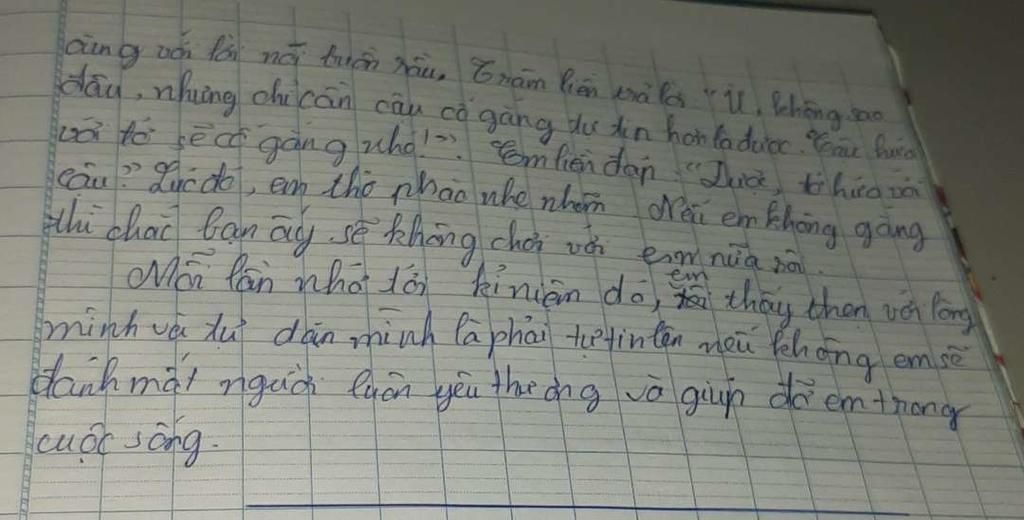 cùng với lời nói buồn rầu. Trâm liền trả lời "Ừ, không sao
đâu, nhưng chỉ cần cậu cố gắng tự tin hơn là được. Cậu hứa
với tớ sẽ cố gắng nhé!". Em liền đáp "Được, tớ hứa với
cậu". Lúc đó, em thở phào nhẹ nhõm. Nếu em không gắng
thì chắc bạn ấy sẽ không chơi với em nữa rồi.
Mỗi lần nhớ tới kỉ niệm đó, em thấy thẹn với lòng
mình và tự dặn mình là phải tự tin lên nếu không em sẽ
đánh mất người luôn yêu thương và giúp đỡ em trong
cuộc sống.